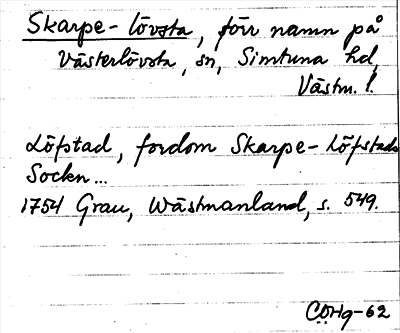 Skarpe-lövsta, förr namn på
Västerlövsta, sn, Simtuna hd,
Västm. l.
Löfstad, fordom Skarpe-Löfstads
Sockn...
1754 Grau, Wästmanland, s. 549.